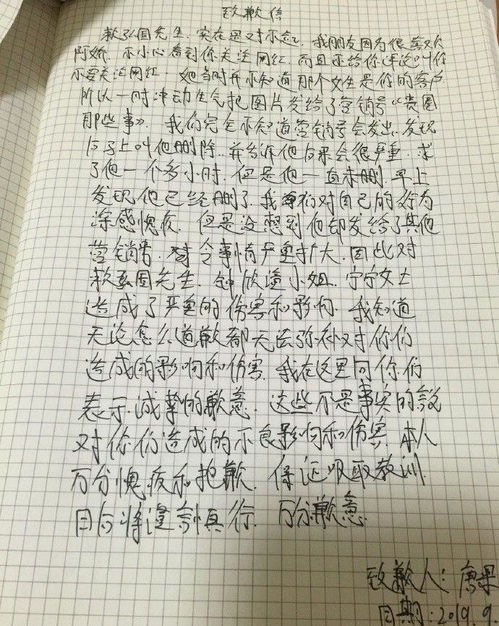 致歉信
赖弘国先生.实在是对不起.我朋友因为很喜欢
阿娇.不小心看到你关注网红.而且还给你评论叫你
不要关注网红.她当时并不知道那个女生是你的客户
所以一时冲动生气把图片发给了营销号“贵圈
那些事》.我们完全不知道营销号会发出.发现
后马上叫他删除.并告诉他后果会很严重.求
了他一个多小时.但是他一直未删.早上
发现他已经删了.我们对自己的行为
深感愧疚.但是没想到他却发给了其他
营销号.令事情严重扩大.因此对
赖弘国先生.钟欣潼小姐.宁宁女士
造成了严重的伤害和影响.我知道
无论怎么道歉都无法弥补对你们
造成的影响和伤害.我在这里向你们
表示诚挚的歉意.这些不是事实的说
对你们造成的不良影响和伤害.本人
万分愧疚和抱歉.保证吸取教训
日后将谨言慎行.万分歉意.
致歉人:唐果
日期:2019.9